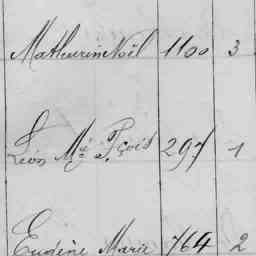 Mathurin Noël 1100 3
Léon Mie Fçois 297 1
Eugène Marie 764 2